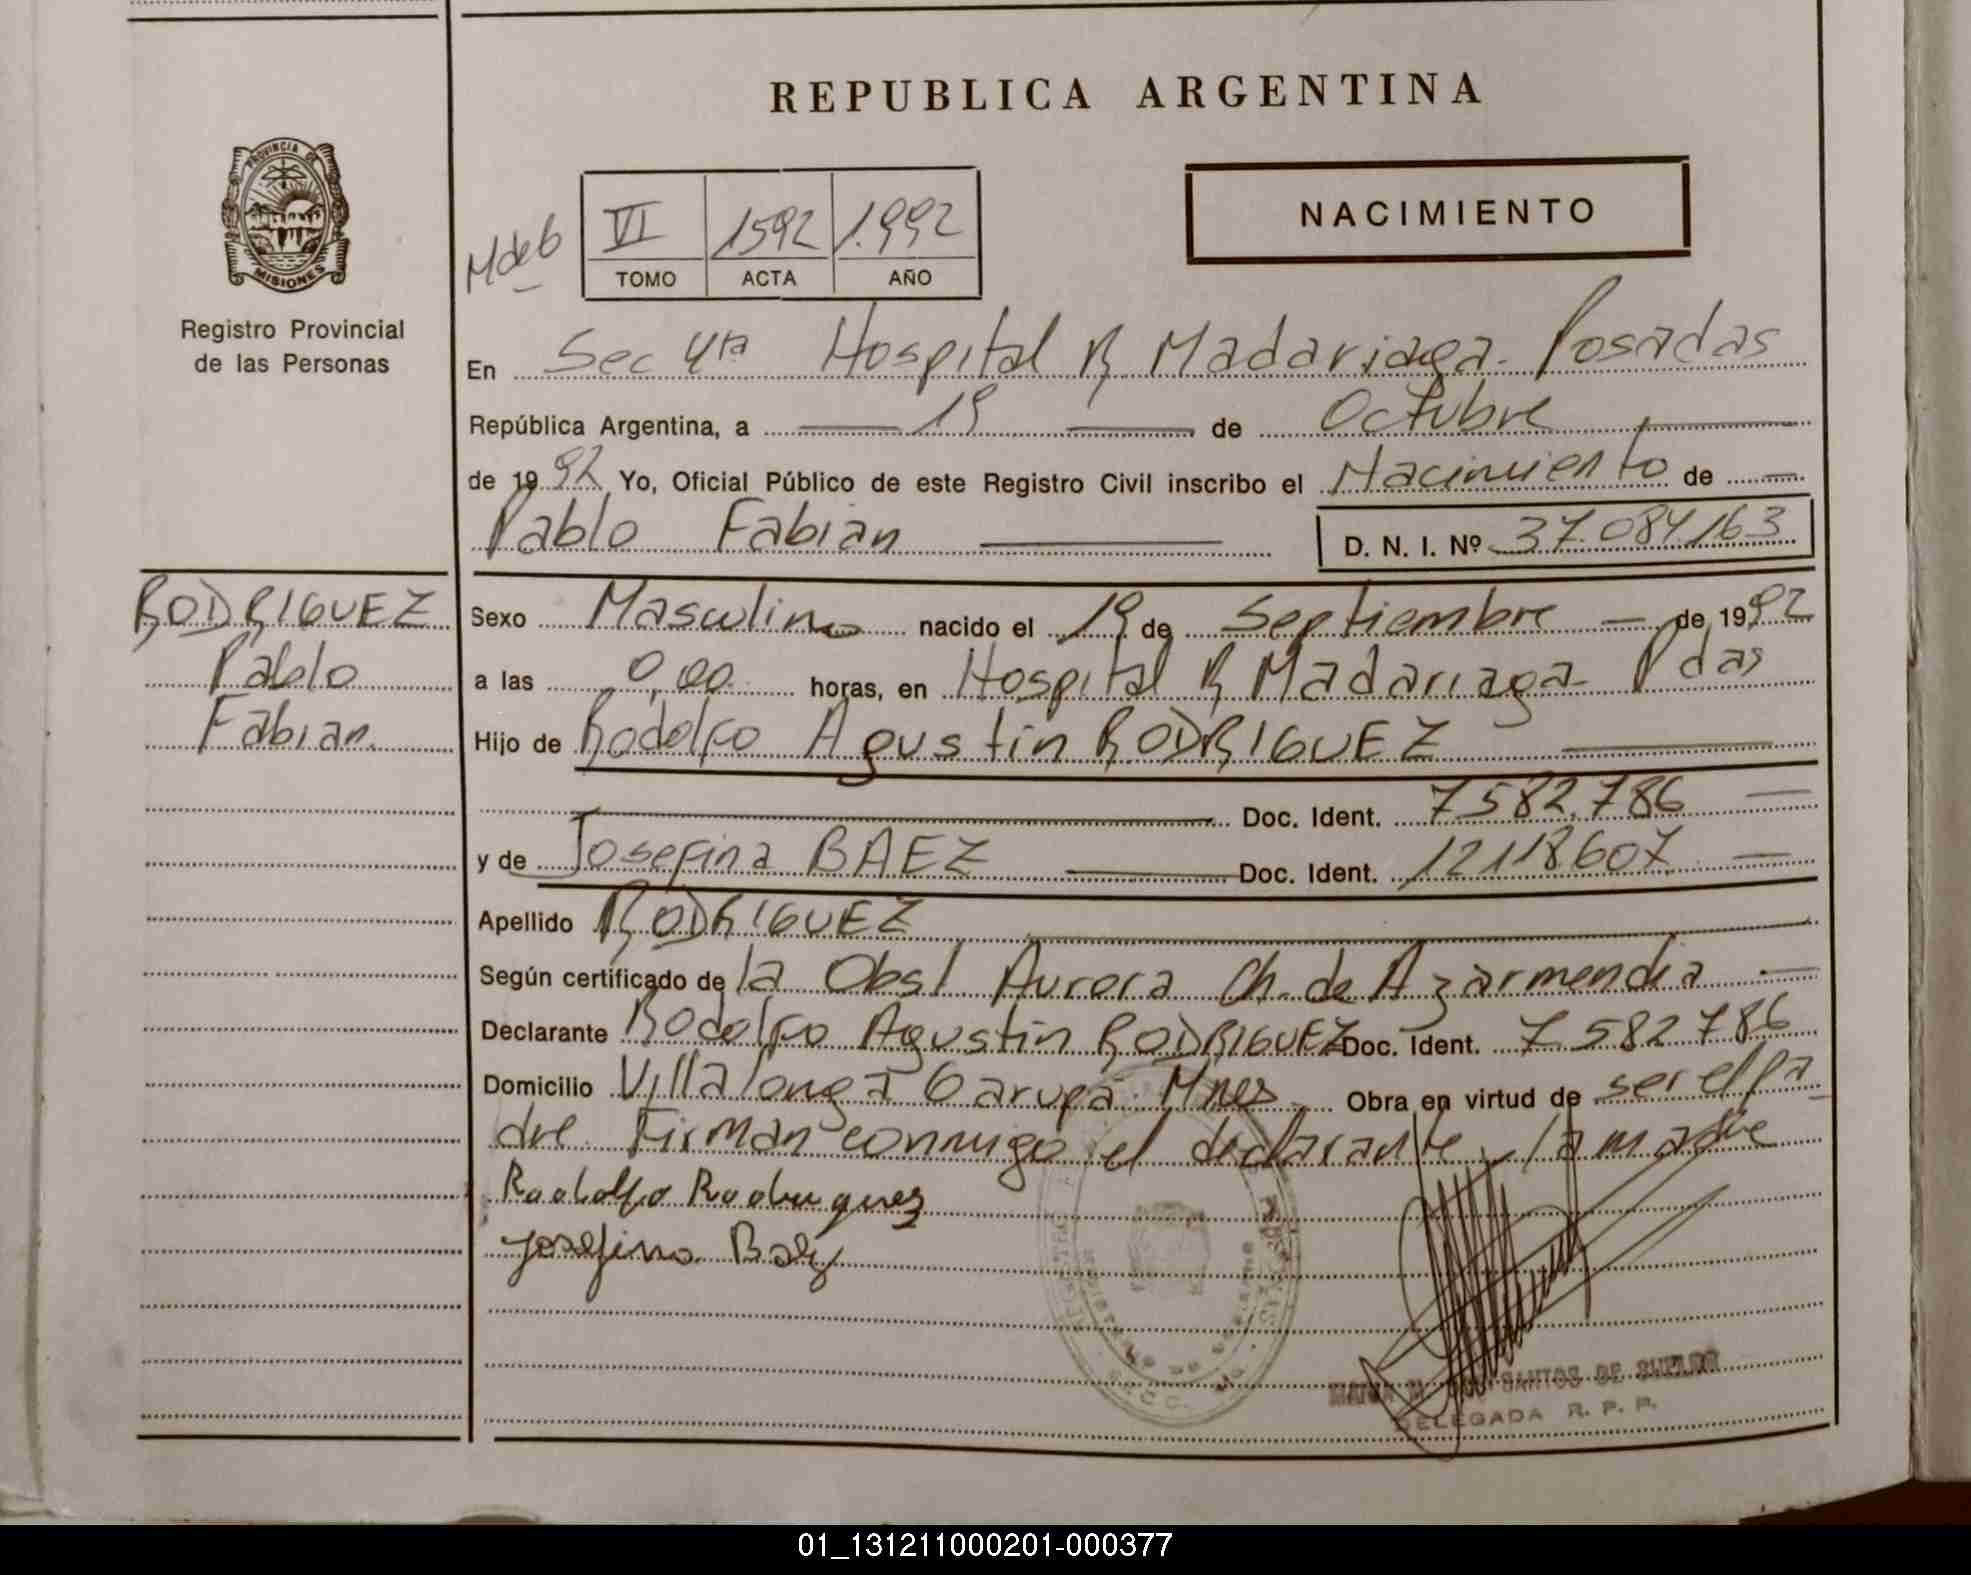 REPUBLICA ARGENTINA
PROVINCIA DE
MISIONES
Registro Provincial
de las Personas
NACIMIENTO
M de 6
VI 1592 1.992
TOMO ACTA AÑO
En Sec 4ta Hospital R Madariaga. Posadas
República Argentina, a 19 de Octubre
de 1992 Yo, Oficial Público de este Registro Civil inscribo el Nacimiento de
Pablo Fabian D. N. I. Nº 37.084.163
RODRIGUEZ
Pablo
Fabian.
Sexo Masculino nacido el 19 de Septiembre de 1992
a las 0,00 horas, en Hospital R Madariaga Pdas
Hijo de Rodolfo Agustin RODRIGUEZ
Doc. Ident. 7.582.786
y de Josefina BAEZ Doc. Ident. 12.118.607
Apellido RODRIGUEZ
Según certificado de la Obst Aurora Ch. de Azarmendia
Declarante Rodolfo Agustin RODRIGUEZ Doc. Ident. 7.582.786
Domicilio Villalonga Garupa Mnes Obra en virtud de ser el pa
dre. Firman conmigo el declarante y la madre
Rodolfo Rodriguez
Josefina Baez
SANTOS DE
DELEGADA R. P. P.
01_131211000201-000377